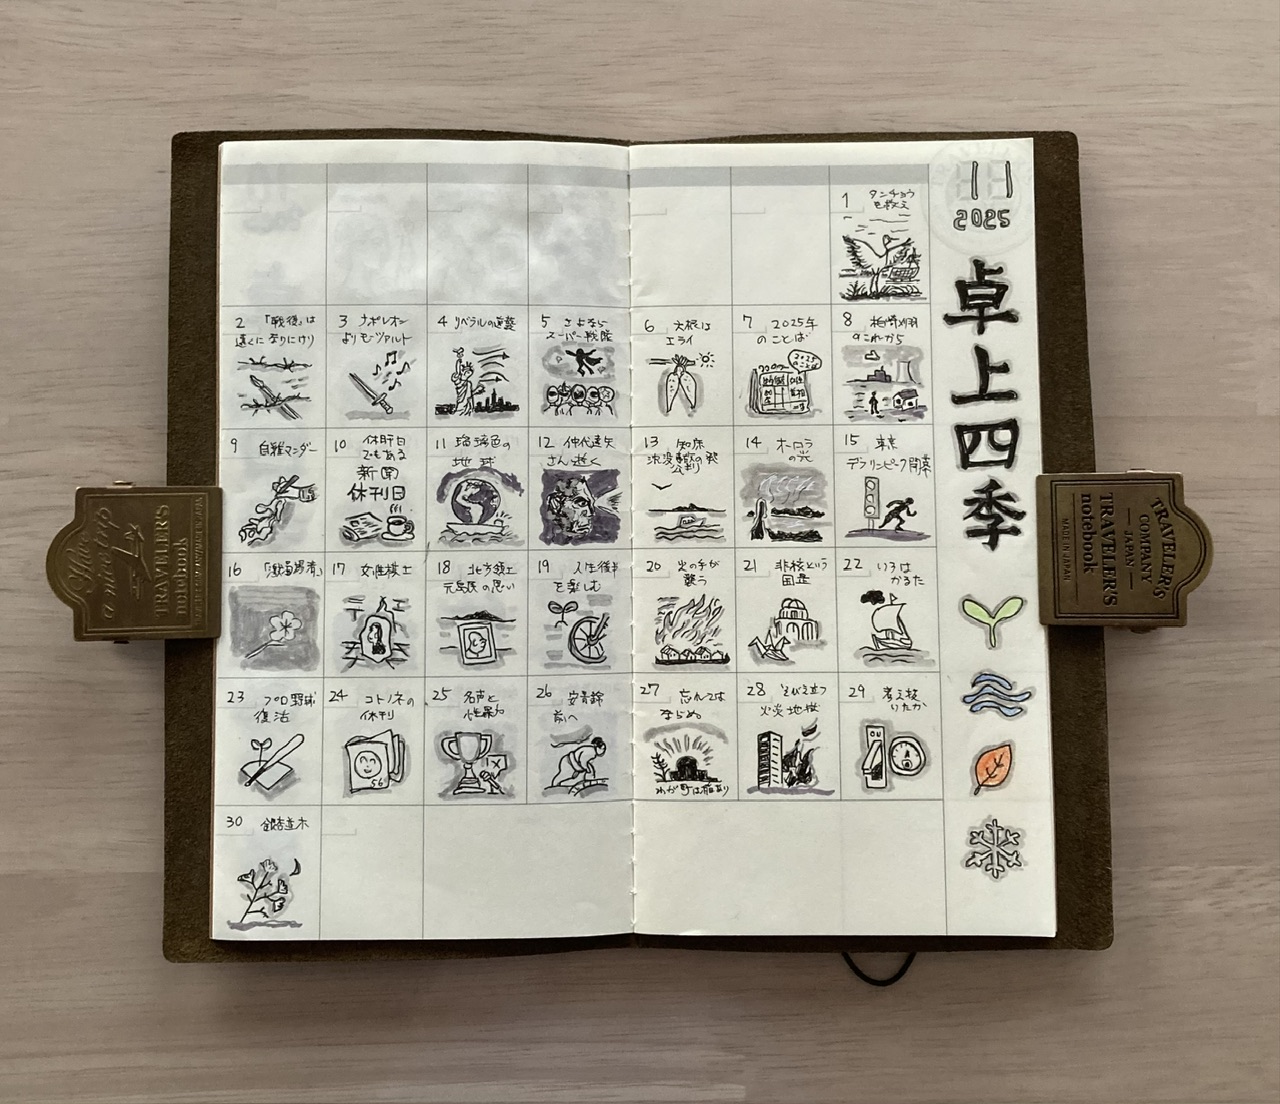 11
2025
卓上四季
1 タンチョウ
を数え
2 「戦後」は
遠くになりにけり
3 ナポレオン
よりモーツァルト
4 リベラルの逆襲
5 さよなら
スーパー戦隊
6 大根は
エライ
7 2025年
のことば
2025
のことば
8 柏崎刈羽
のこれから
9 自雑マンダー
10 休肝日
でもある
新聞
休刊日
11 瑠璃色の
地球
12 仲代達矢
さん逝く
13 知床
沈没事故の発
公判
14 オーロラ
の光
15 東京
デフリンピック開幕
16
17 女性棋士
18 北方領土
元島民の思い
19 人生後半
を楽しむ
20 火の手が
襲う
21 非核という
国是
22 いろは
かるた
23 プロ野球
復活
24 コトノネの
休刊
56
25 名声と
性暴力
26 安青錦
前へ
27 忘れては
ならぬ
28 そびえ立つ
火炎地獄
29 考え抜
いたか
30 銀杏並木
TRAVELER'S
notebook
TRAVELER'S
COMPANY
JAPAN
TRAVELER'S
notebook
MADE IN JAPAN